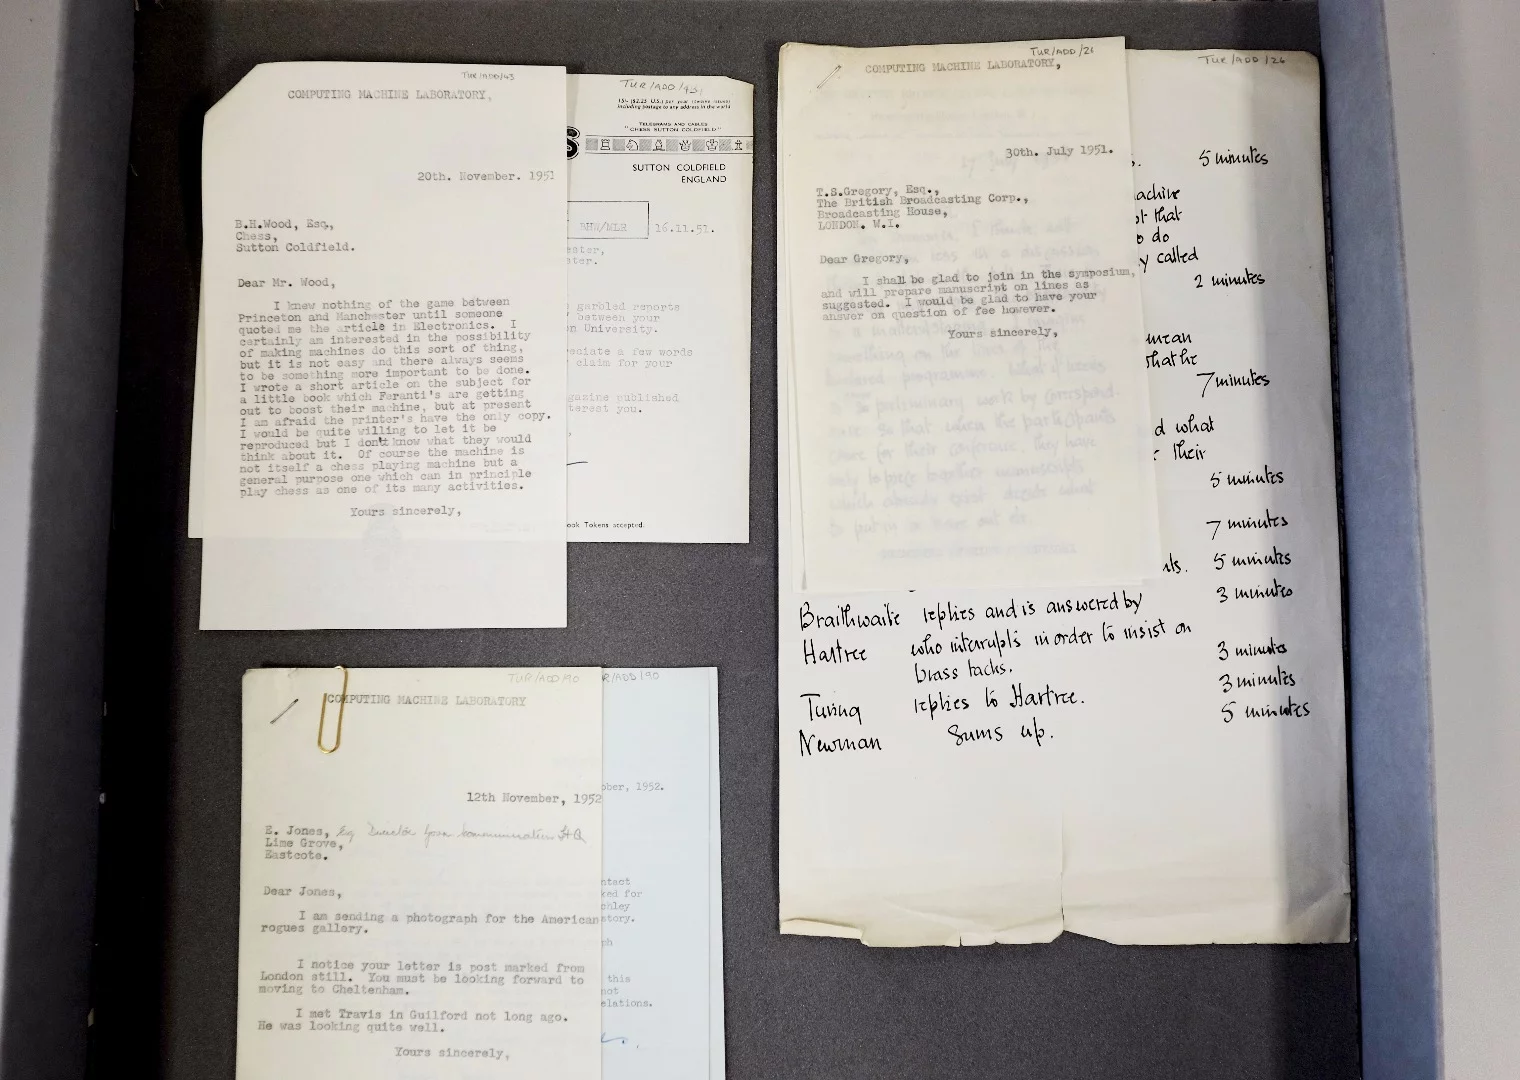 TUR/ADD/43
COMPUTING MACHINE LABORATORY,
20th. November. 1951
B.H.Wood, Esq.,
Chess,
Sutton Coldfield.
Dear Mr. Wood,
I knew nothing of the game between
Princeton and Manchester until someone
quoted me the article in Electronics. I
certainly am interested in the possibility
of making machines do this sort of thing,
but it is not easy and there always seems
to be something more important to be done.
I wrote a short article on the subject for
a little book which Feranti's are getting
out to boost their machine, but at present
I am afraid the printer's have the only copy.
I would be quite willing to let it be
reproduced but I don't know what they would
think about it. Of course the machine is
not itself a chess playing machine but a
general purpose one which can in principle
play chess as one of its many activities.
Yours sincerely,
TUR/ADD/43
15/- ($2.25 U.S.) per year (twelve issues)
including postage to any address in the world
TELEGRAMS AND CABLES
"CHESS SUTTON COLDFIELD"
SUTTON COLDFIELD
ENGLAND
BHW/MLR
16.11.51.
ester,
ster.
garbled reports
between your
n University.
eciate a few words
claim for your
gazine published
terest you.
ook Tokens accepted.
TUR/ADD/26
COMPUTING MACHINE LABORATORY,
30th. July 1951.
T.S.Gregory, Esq.,
The British Broadcasting Corp.,
Broadcasting House,
LONDON. W.I.
Dear Gregory,
I shall be glad to join in the symposium,
and will prepare manuscript on lines as
suggested. I would be glad to have your
answer on question of fee however.
Yours sincerely,
TUR/ADD/26
5 minutes
achine
that
do
called
2 minutes
mean
that he
7 minutes
d what
their
5 minutes
7 minutes
nts. 5 minutes
Braithwaite replies and is answered by 3 minutes
Hartree who interrupts in order to insist on
brass tacks. 3 minutes
Turing replies to Hartree. 3 minutes
Newman Sums up. 5 minutes
TUR/ADD/90
COMPUTING MACHINE LABORATORY
12th November, 1952
E. Jones, Esq Director Govn Communication HQ
Lime Grove,
Eastcote.
Dear Jones,
I am sending a photograph for the American
rogues gallery.
I notice your letter is post marked from
London still. You must be looking forward to
moving to Cheltenham.
I met Travis in Guilford not long ago.
He was looking quite well.
Yours sincerely,
R/ADD/90
ober, 1952.
ntact
ked for
chley
story.
ph
this
not
elations.